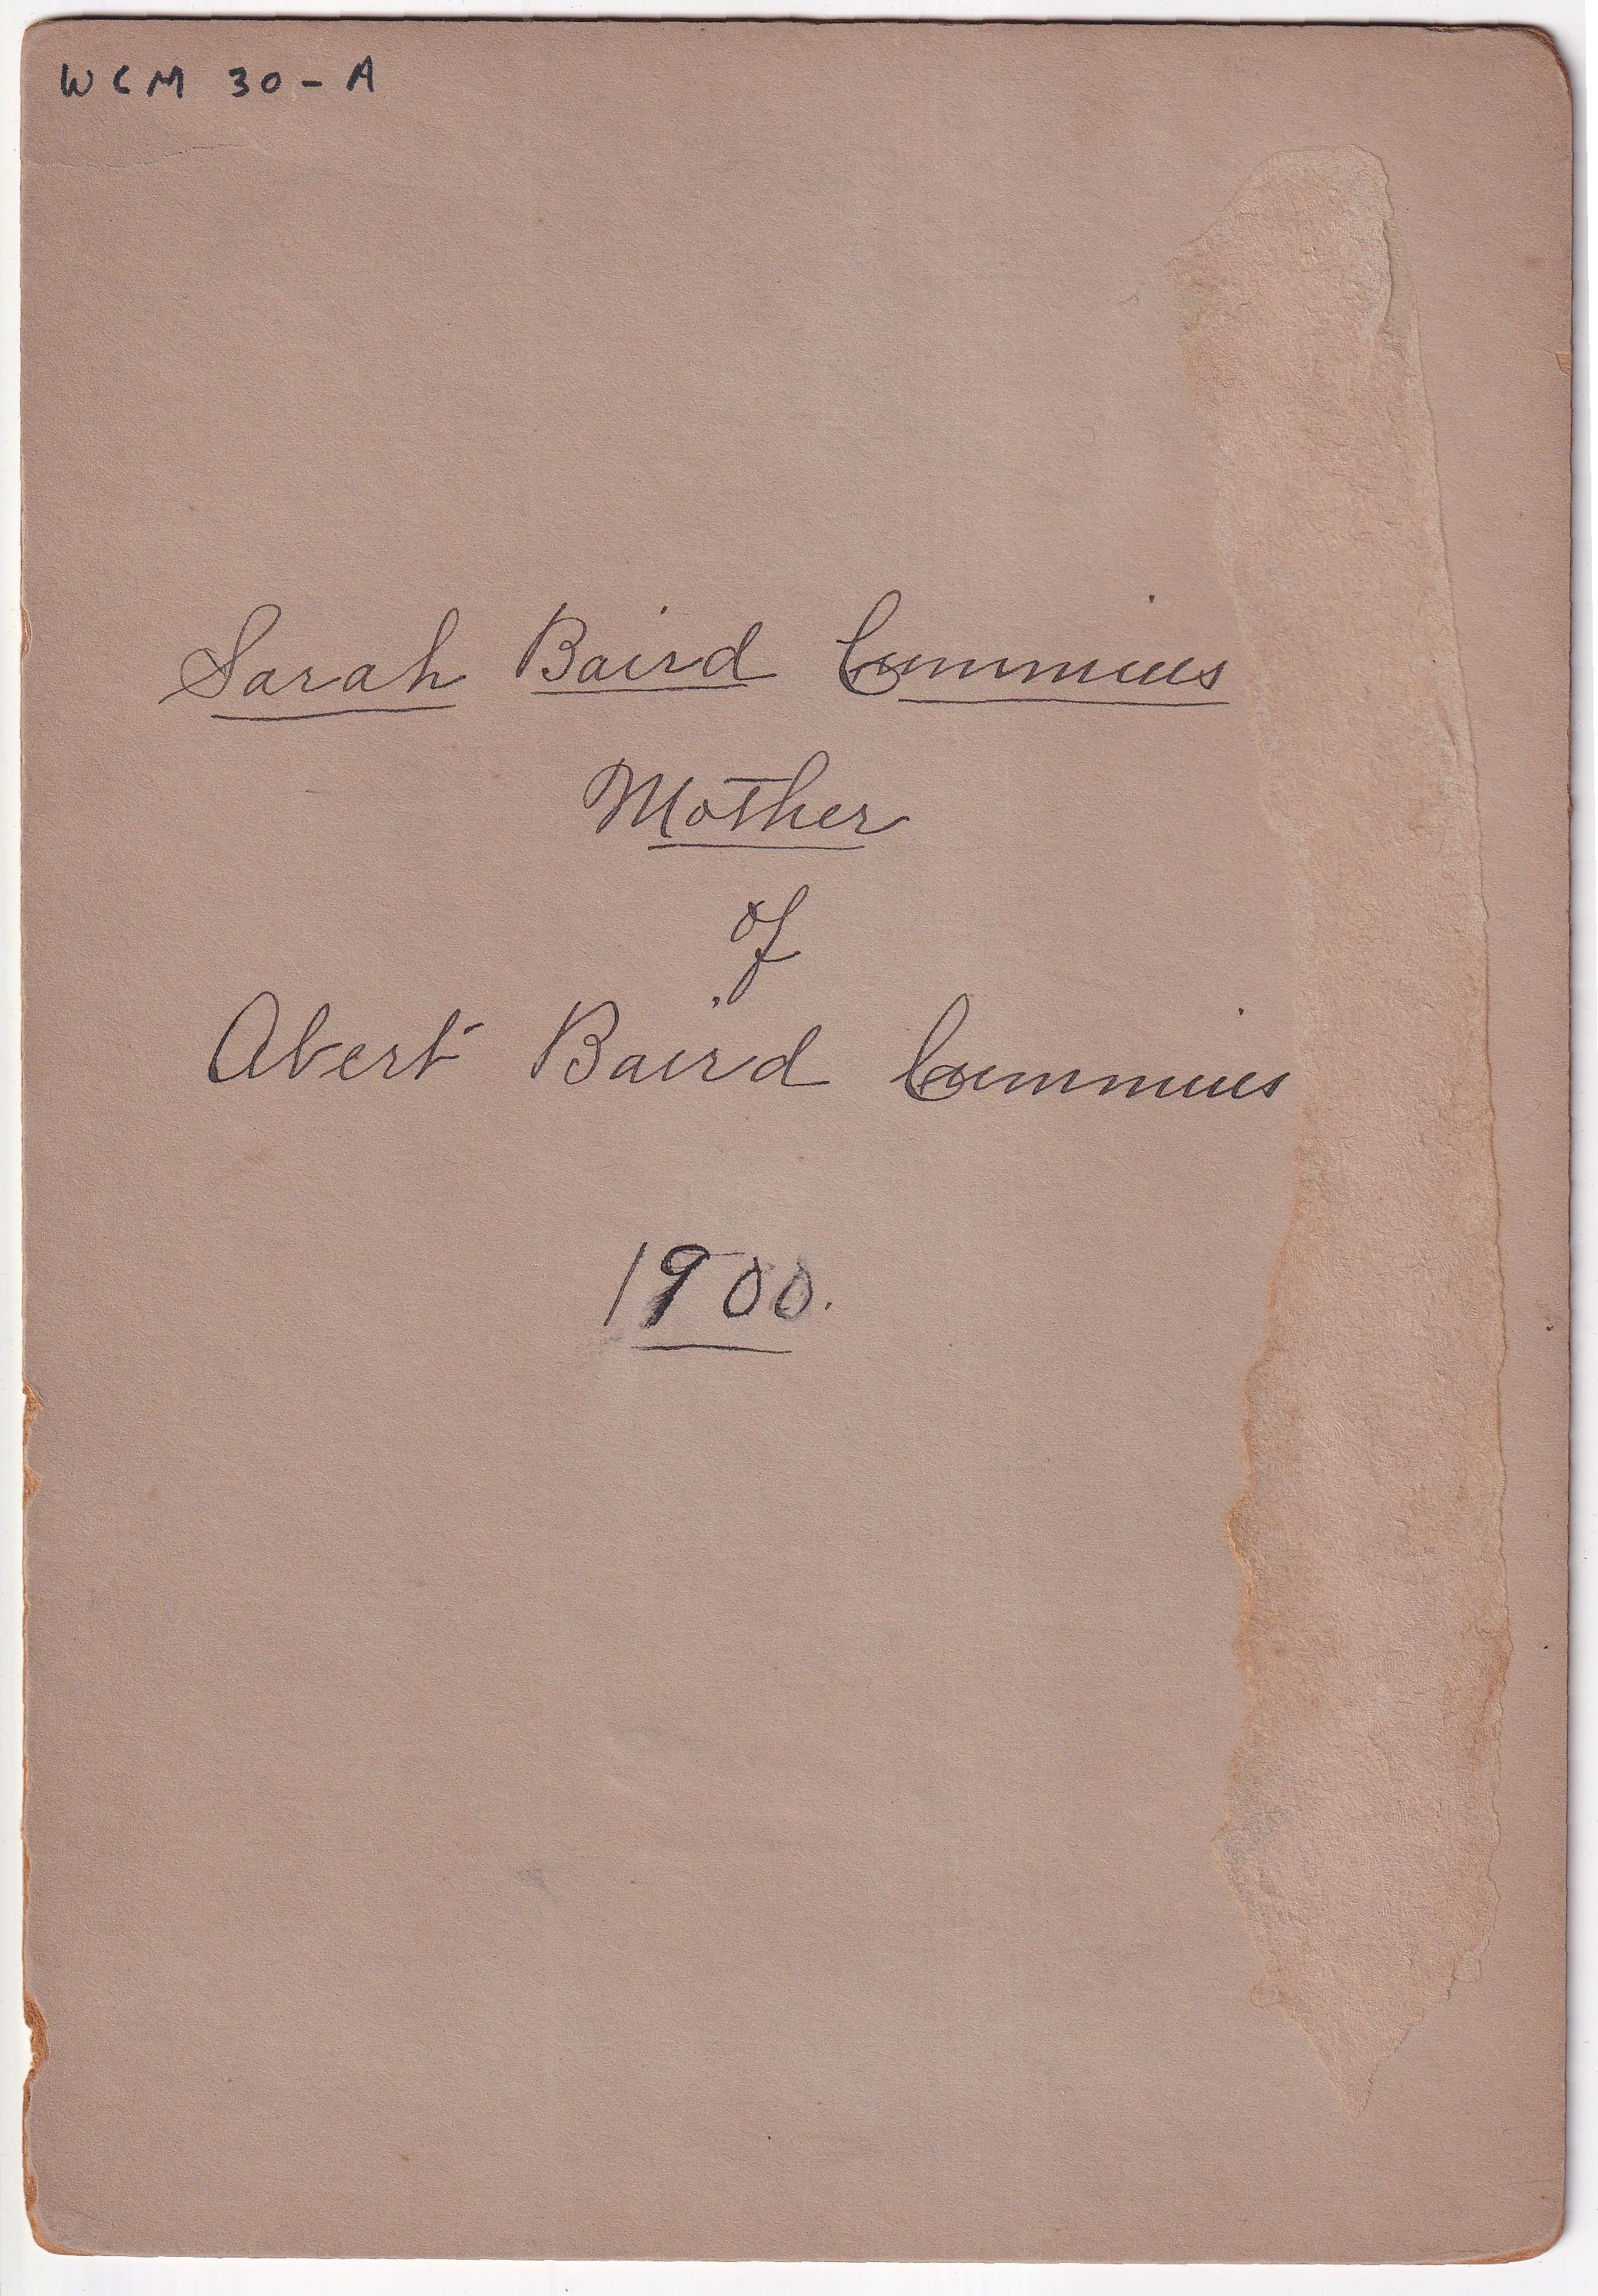 WCM 30-A
Sarah Baird Cummins
Mother
of
Abert Baird Cummins
1900.